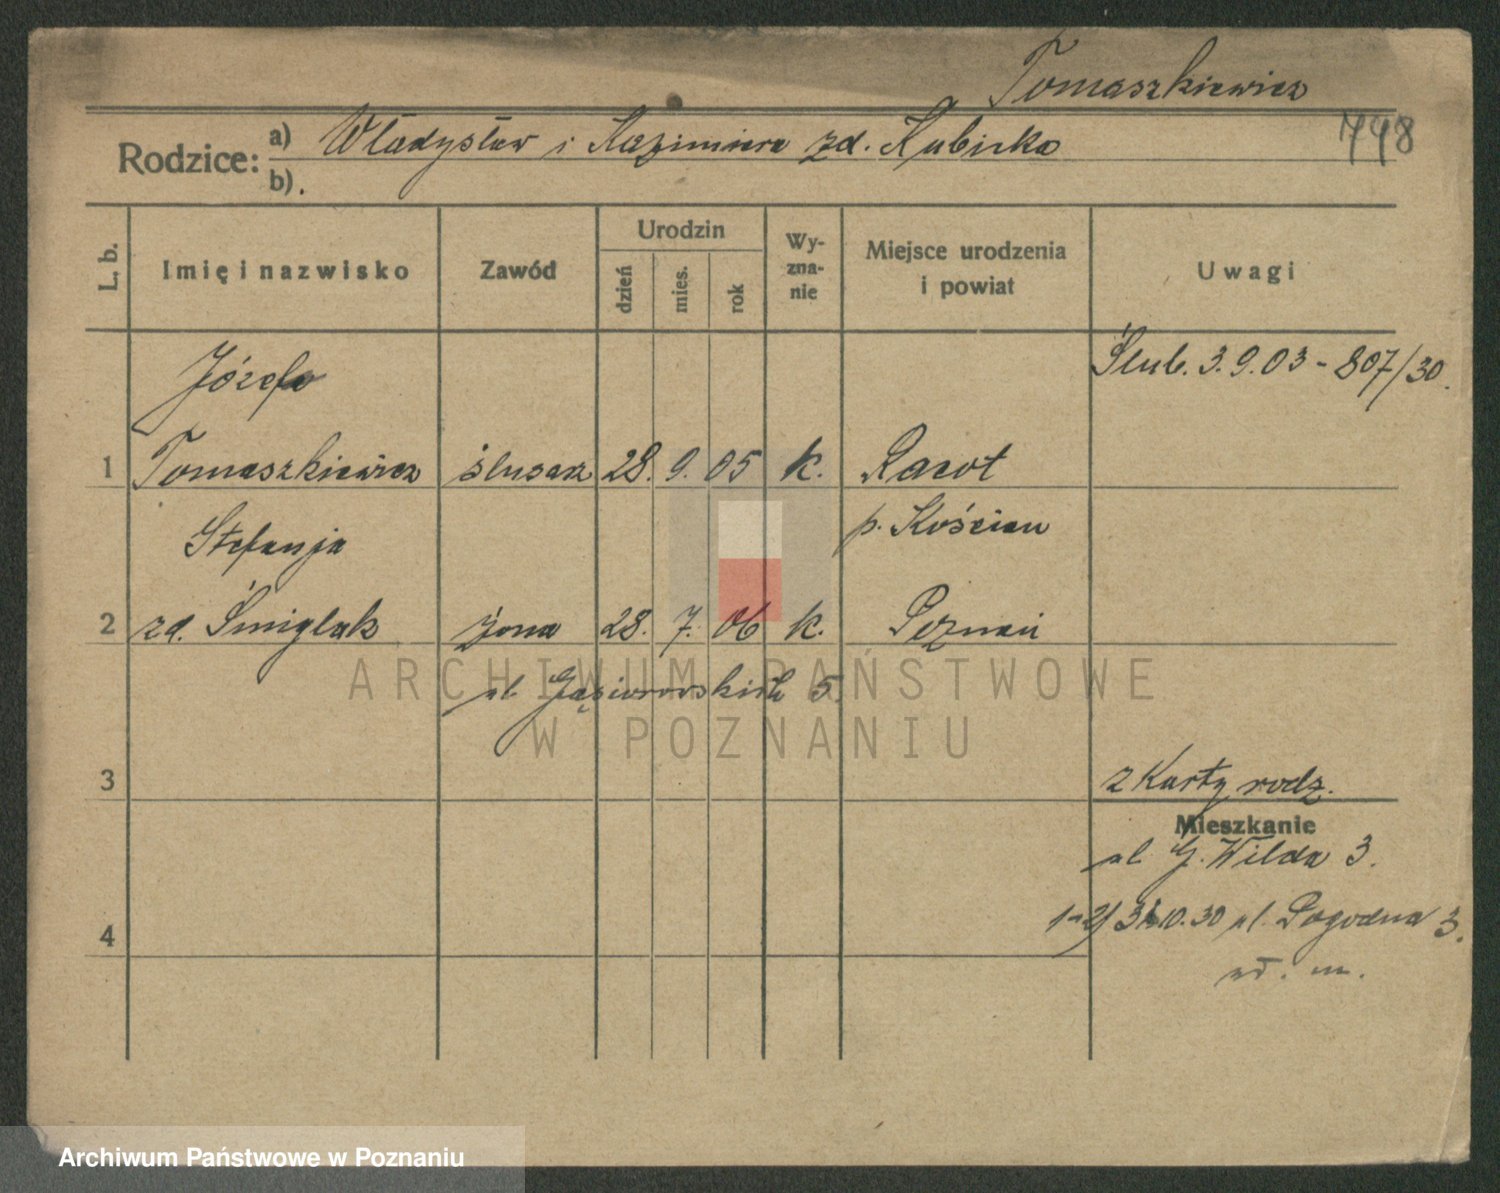 Tomaszkiewicz
748
Rodzice:
a) Władysław i Kazimiera zd. Kubicka
b).
L. b.
Imię i nazwisko
Zawód
Urodzin
dzień
mies.
rok
Wy-
zna-
nie
Miejsce urodzenia
i powiat
Uwagi
Józef
Ślub. 3.9.03 - 807/30.
1 Tomaszkiewicz ślusarz 28. 9. 05 k. Racot
Stefanja p. Kościan
2 zd. Śmiglak żona 28. 7. 06 k. Poznań
ul. Gąsiorowskich 5.
3
z Karty rodz.
Mieszkanie
ul. G. Wilda 3.
4
1-2) 31.10.30 ul. Pogodna 3.
wł. m.
ARCHIWUM PAŃSTWOWE
W POZNANIU
Archiwum Państwowe w Poznaniu